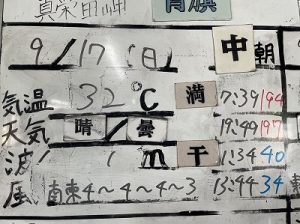 真栄田岬 青旗
9/17(日) 中 朝
気温 32℃ 満 17:39 194
天気 晴/曇 19:49 197
波 1m 干 1:34 40
風 南東4~4~4~3 13:44 34